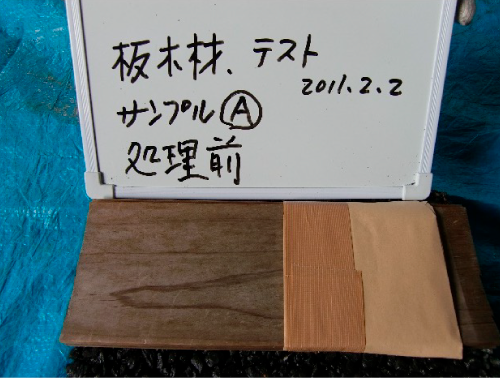 板木材、テスト
2011.2.2
サンプルⒶ
処理前